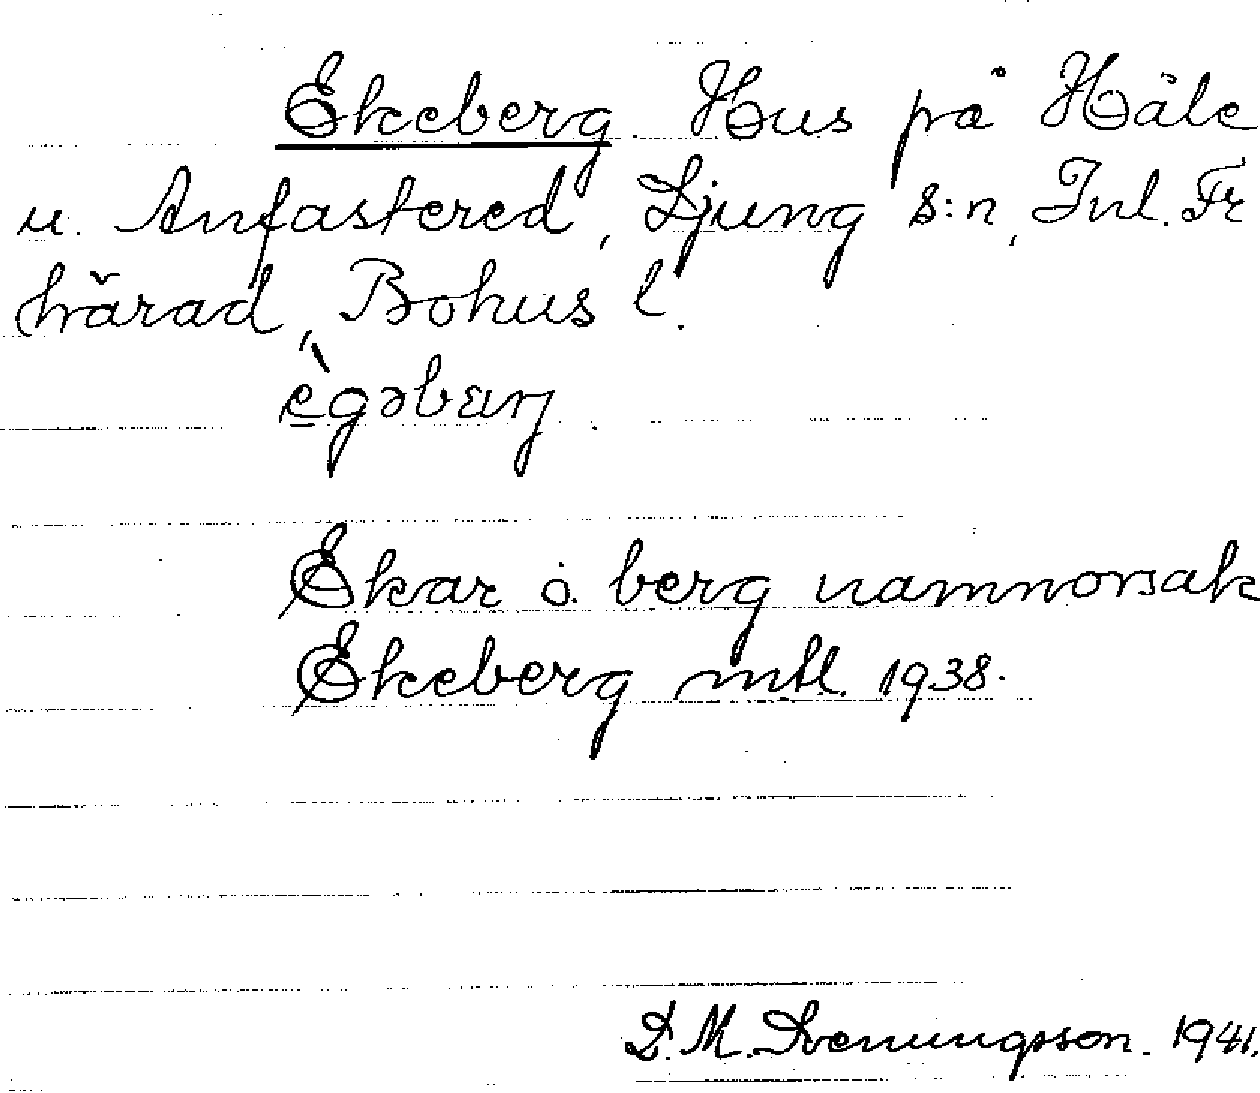 Ekeberg. Hus på Häle
u. Anfastered, Ljung s:n, Inl. Fr
härad, Bohus l.
ègəbærj.
Ekar o. berg namnorsak
Ekeberg mtl. 1938.
D. M. Svenungsson. 1941.